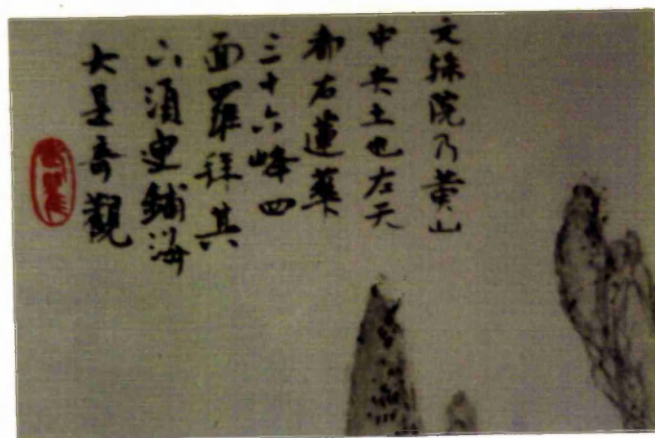 文殊院乃黄山
中央土也左天
都右蓮華
三十六峰四
面羅拜其
下須臾鋪海
大是奇觀